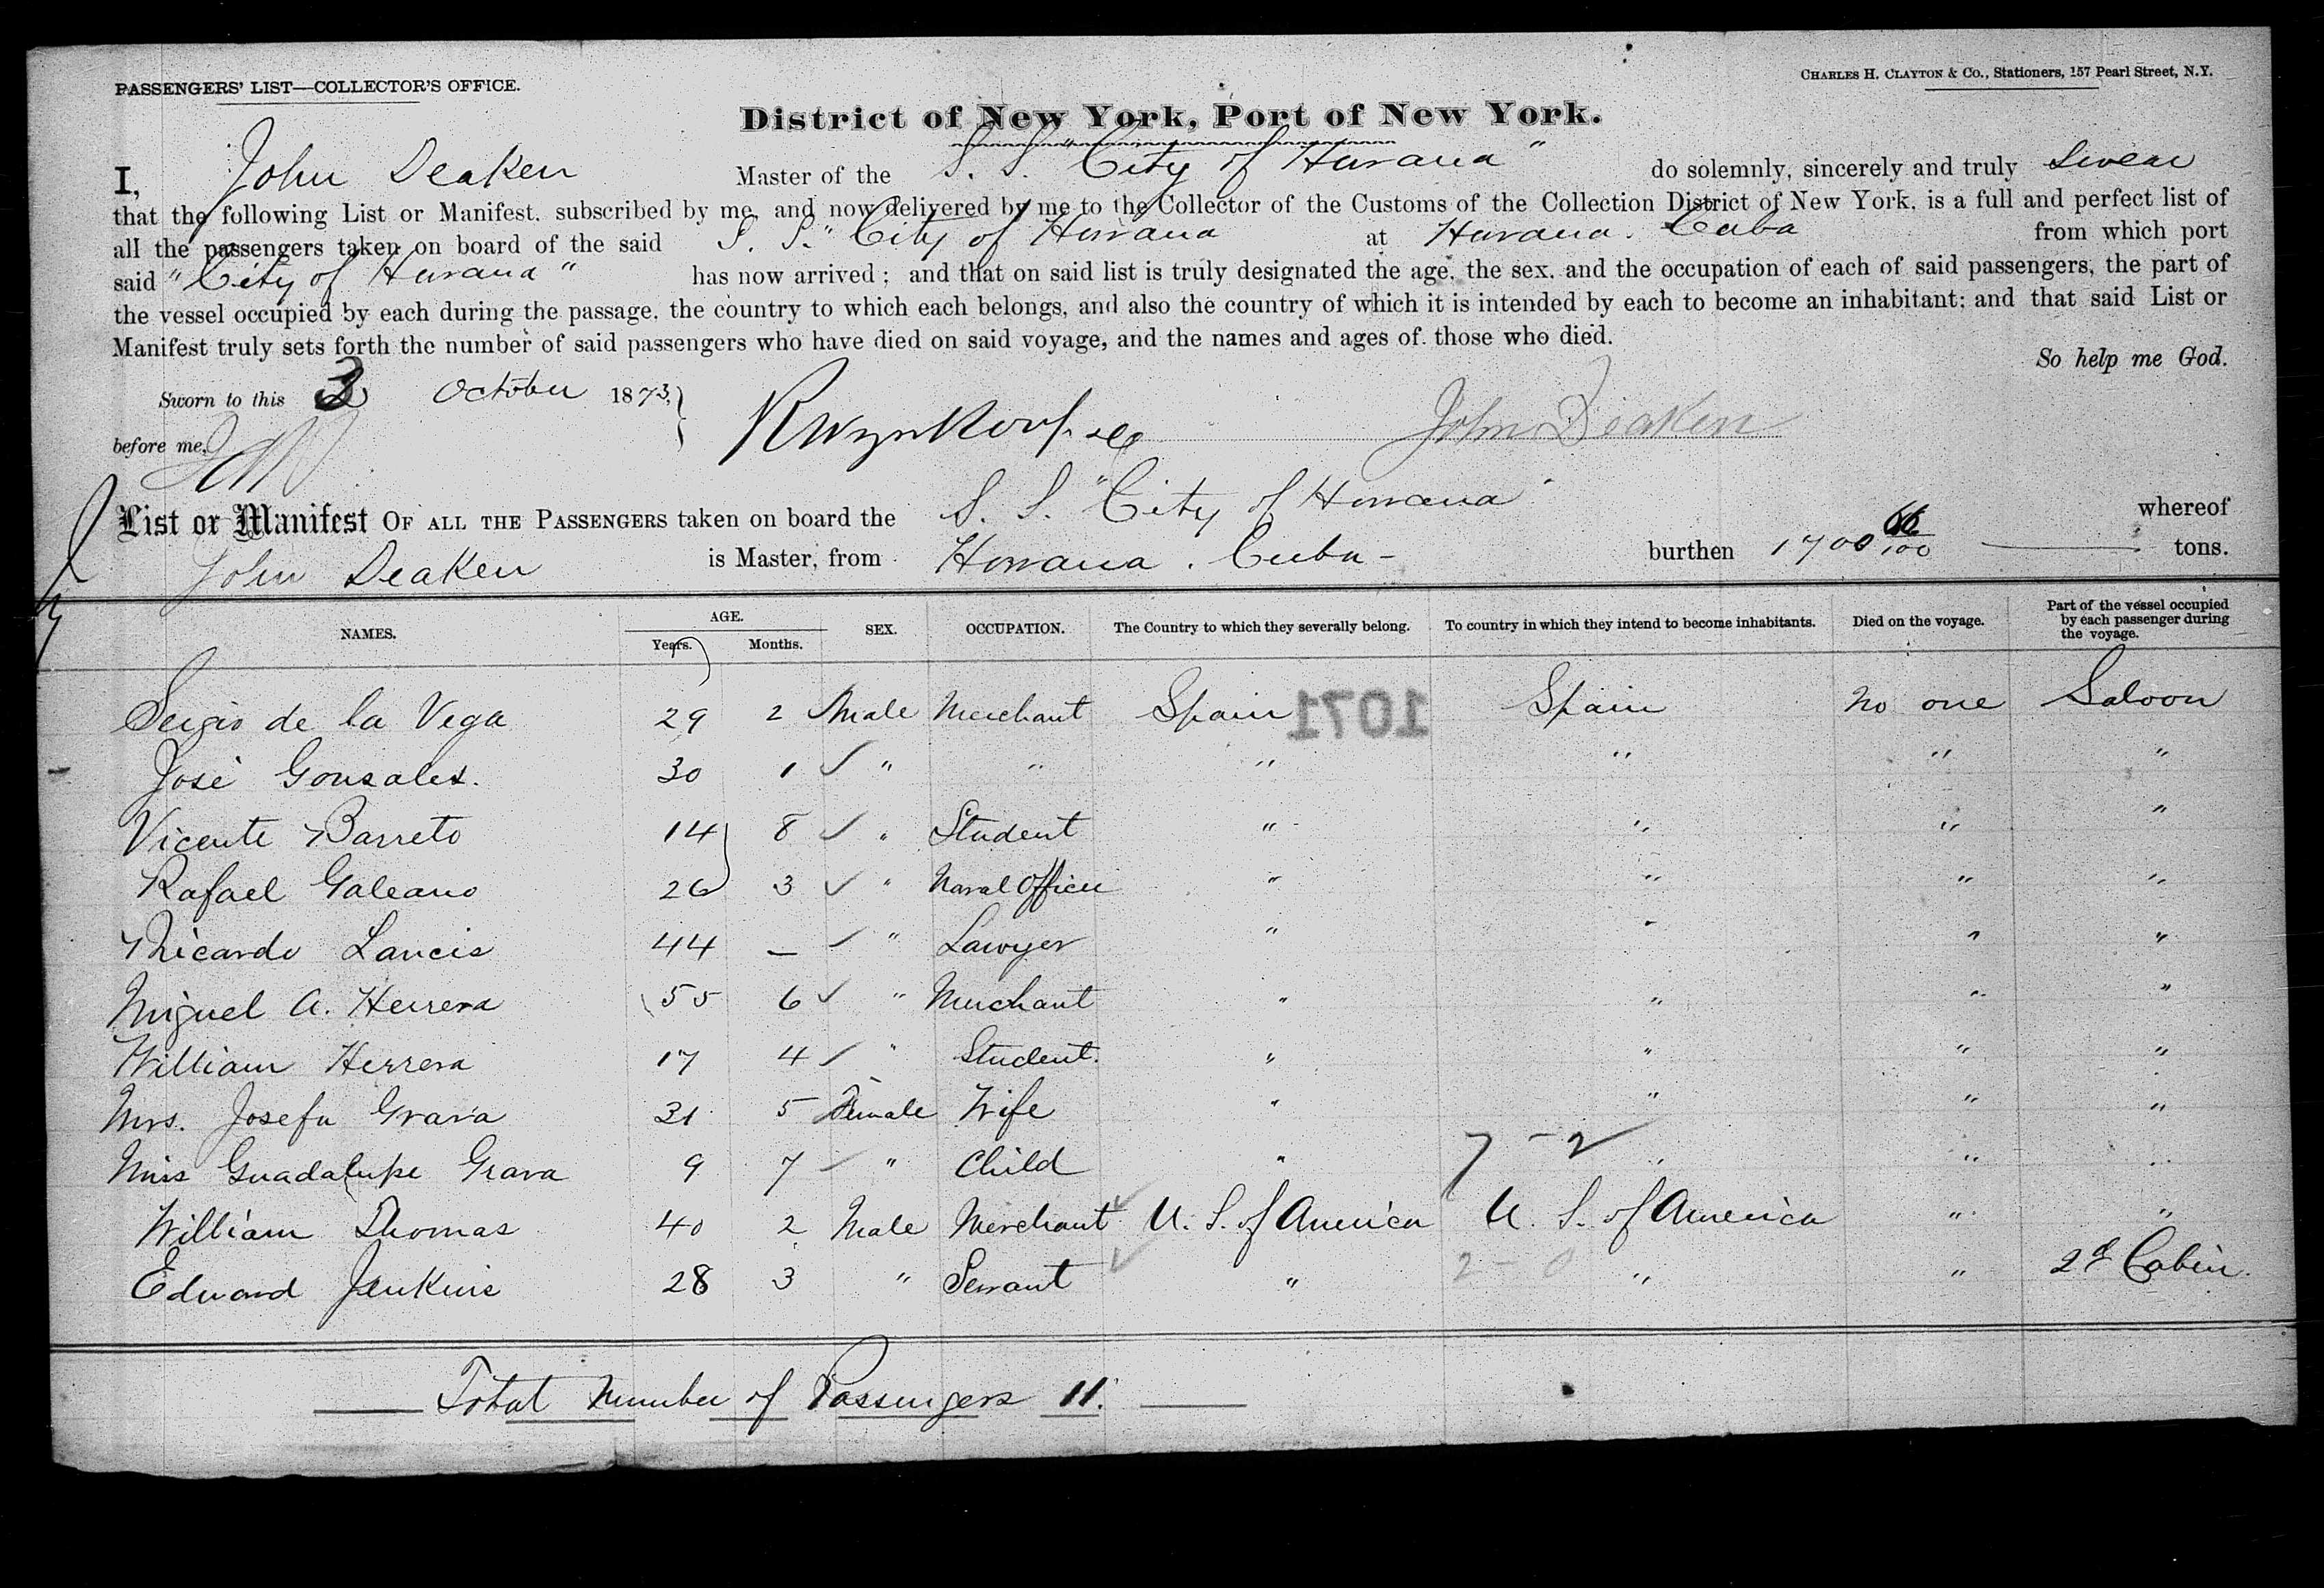 PASSENGERS' LIST—COLLECTOR'S OFFICE.
CHARLES H. CLAYTON & CO., Stationers, 157 Pearl Street, N.Y.
District of New York, Port of New York.
I, John Deaken Master of the S. S. "City of Havana" do solemnly, sincerely and truly swear
that the following List or Manifest, subscribed by me, and now delivered by me to the Collector of the Customs of the Collection District of New York, is a full and perfect list of
all the passengers taken on board of the said S. S. "City of Havana at Havana. Cuba from which port
said "City of Havana" has now arrived; and that on said list is truly designated the age, the sex, and the occupation of each of said passengers, the part of
the vessel occupied by each during the passage, the country to which each belongs, and also the country of which it is intended by each to become an inhabitant; and that said List or
Manifest truly sets forth the number of said passengers who have died on said voyage, and the names and ages of those who died.
So help me God.
Sworn to this 3 October 1873,
before me, John Deaken
List or Manifest OF ALL THE PASSENGERS taken on board the S. S. "City of Havana" whereof
John Deaken is Master, from Havana. Cuba - burthen 1700 66/100 tons.
NAMES. AGE. SEX. OCCUPATION. The Country to which they severally belong. To country in which they intend to become inhabitants. Died on the voyage. Part of the vessel occupied by each passenger during the voyage.
Years. Months.
Sergio de la Vega 29 2 Male Merchant Spain 1071 Spain No one Saloon
José Gonsales. 30 1 " " " " " "
Vicente Barreto 14 8 " Student " " " "
Rafael Galeano 26 3 " Naval Officer " " " "
Ricardo Lancis 44 — " Lawyer " " " "
Miguel A. Herrera 55 6 " Merchant " " " "
William Herrera 17 4 " Student. " " " "
Mrs. Josefa Grava 31 5 Female Wife " " " "
Miss Guadalupe Grava 9 7 " Child " 7 - 2 " " "
William Thomas 40 2 Male Merchant U. S. of America U. S. of America " "
Edward Jenkins 28 3 " Servant " 2 - 0 " " 2d Cabin.
Total Number of Passengers 11.